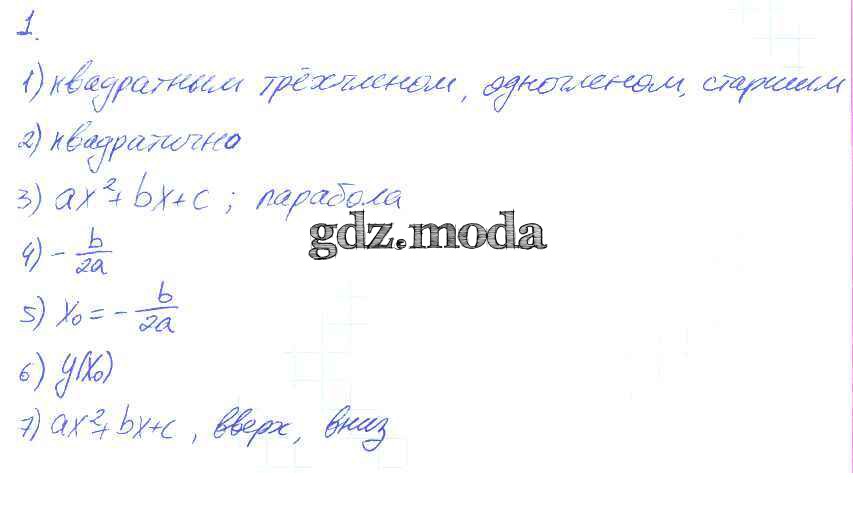 1.
1) квадратным трёхчленом, одночленом, старшим
2) квадратично
3) ax²+bx+c ; парабола
gdz.moda
4) - b/2a
5) x₀ = - b/2a
6) y(x₀)
7) ax²+bx+c , вверх, вниз